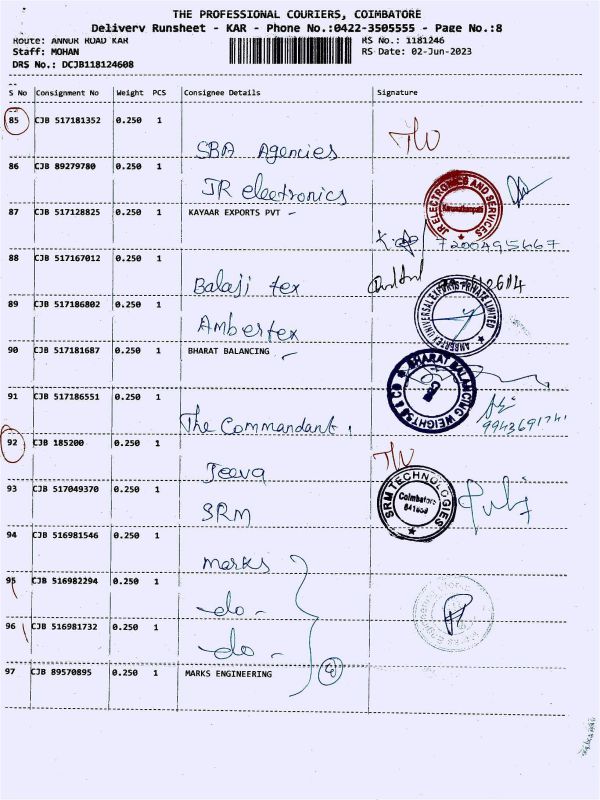 THE PROFESSIONAL COURIERS, COIMBATORE
Delivery Runsheet - KAR - Phone No.:0422-3505555 - Page No.:8
Route: ANNUR ROAD KAR RS No.: 1181246
Staff: MOHAN RS Date: 02-Jun-2023
DRS No.: DCJB118124608
S No Consignment No Weight PCS Consignee Details Signature
85 CJB 517181352 0.250 1
SBA Agencies
86 CJB 89279780 0.250 1
JR electronics
JR ELECTRONICS AND SERVICES
87 CJB 517128825 0.250 1 KAYAAR EXPORTS PVT -
7200495667
88 CJB 517167012 0.250 1
Balaji tex
89 CJB 517186802 0.250 1
Ambertex
UNIVERSAL EXPORTS PRIVATE LIMITED
90 CJB 517181687 0.250 1 BHARAT BALANCING -
BHARAT BALANCING WEIGHTSS & CO
91 CJB 517186551 0.250 1
The Commandant,
92 CJB 185200 0.250 1
Jeeva
93 CJB 517049370 0.250 1
SRM
SRM TECHNOLOGIES
Coimbatore
94 CJB 516981546 0.250 1
marks
95 CJB 516982294 0.250 1
-do-
96 CJB 516981732 0.250 1
-do-
97 CJB 89570895 0.250 1 MARKS ENGINEERING